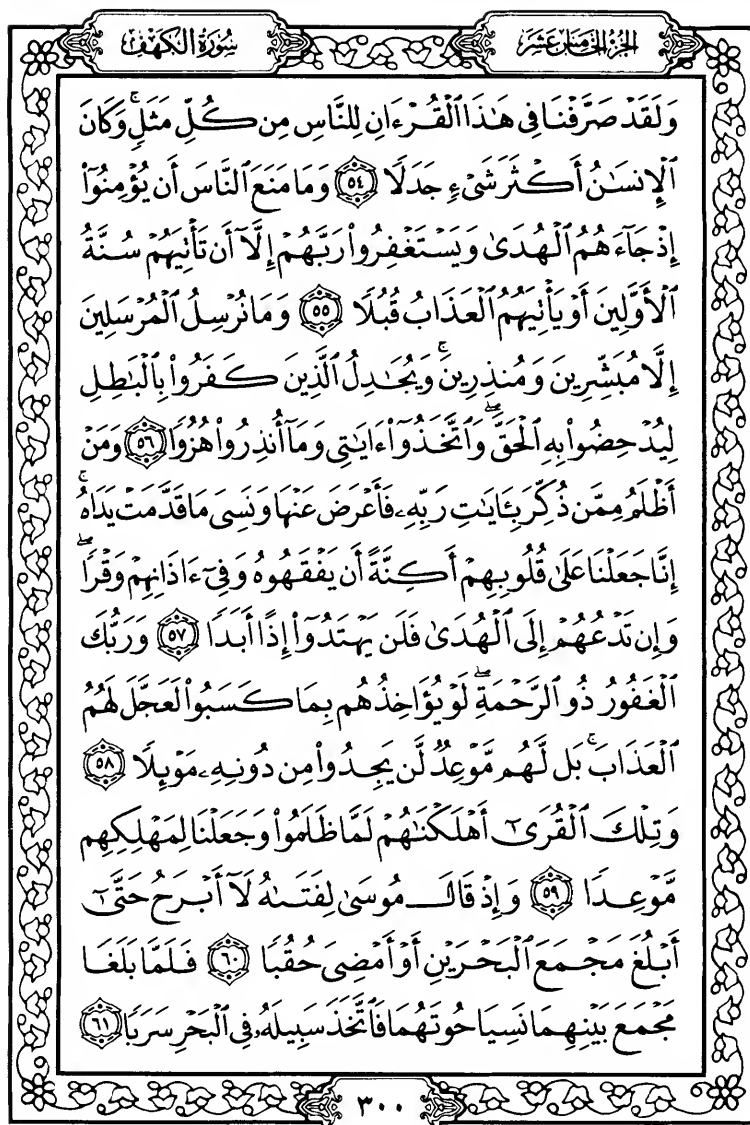 الجزء الخامس عشر
سورة الكهف
وَلَقَدْ صَرَّفْنَا فِى هَٰذَا ٱلْقُرْءَانِ لِلنَّاسِ مِن كُلِّ مَثَلٍ ۚ وَكَانَ
ٱلْإِنسَٰنُ أَكْثَرَ شَىْءٍ جَدَلًا ٥٤ وَمَا مَنَعَ ٱلنَّاسَ أَن يُؤْمِنُوٓا۟
إِذْ جَآءَهُمُ ٱلْهُدَىٰ وَيَسْتَغْفِرُوا۟ رَبَّهُمْ إِلَّآ أَن تَأْتِيَهُمْ سُنَّةُ
ٱلْأَوَّلِينَ أَوْ يَأْتِيَهُمُ ٱلْعَذَابُ قُبُلًا ٥٥ وَمَا نُرْسِلُ ٱلْمُرْسَلِينَ
إِلَّا مُبَشِّرِينَ وَمُنذِرِينَ ۚ وَيُجَٰدِلُ ٱلَّذِينَ كَفَرُوا۟ بِٱلْبَٰطِلِ
لِيُدْحِضُوا۟ بِهِ ٱلْحَقَّ ۖ وَٱتَّخَذُوٓا۟ ءَايَٰتِى وَمَآ أُنذِرُوا۟ هُزُوًا ٥٦ وَمَنْ
أَظْلَمُ مِمَّن ذُكِّرَ بِـَٔايَٰتِ رَبِّهِۦ فَأَعْرَضَ عَنْهَا وَنَسِىَ مَا قَدَّمَتْ يَدَاهُ ۚ
إِنَّا جَعَلْنَا عَلَىٰ قُلُوبِهِمْ أَكِنَّةً أَن يَفْقَهُوهُ وَفِىٓ ءَاذَانِهِمْ وَقْرًا ۖ
وَإِن تَدْعُهُمْ إِلَى ٱلْهُدَىٰ فَلَن يَهْتَدُوٓا۟ إِذًا أَبَدًا ٥٧ وَرَبُّكَ
ٱلْغَفُورُ ذُو ٱلرَّحْمَةِ ۖ لَوْ يُؤَاخِذُهُم بِمَا كَسَبُوا۟ لَعَجَّلَ لَهُمُ
ٱلْعَذَابَ ۚ بَل لَّهُم مَّوْعِدٌ لَّن يَجِدُوا۟ مِن دُونِهِۦ مَوْئِلًا ٥٨
وَتِلْكَ ٱلْقُرَىٰٓ أَهْلَكْنَٰهُمْ لَمَّا ظَلَمُوا۟ وَجَعَلْنَا لِمَهْلِكِهِم
مَّوْعِدًا ٥٩ وَإِذْ قَالَ مُوسَىٰ لِفَتَىٰهُ لَآ أَبْرَحُ حَتَّىٰٓ
أَبْلُغَ مَجْمَعَ ٱلْبَحْرَيْنِ أَوْ أَمْضِىَ حُقُبًا ٦٠ فَلَمَّا بَلَغَا
مَجْمَعَ بَيْنِهِمَا نَسِيَا حُوتَهُمَا فَٱتَّخَذَ سَبِيلَهُۥ فِى ٱلْبَحْرِ سَرَبًا ٦١
٣٠٠